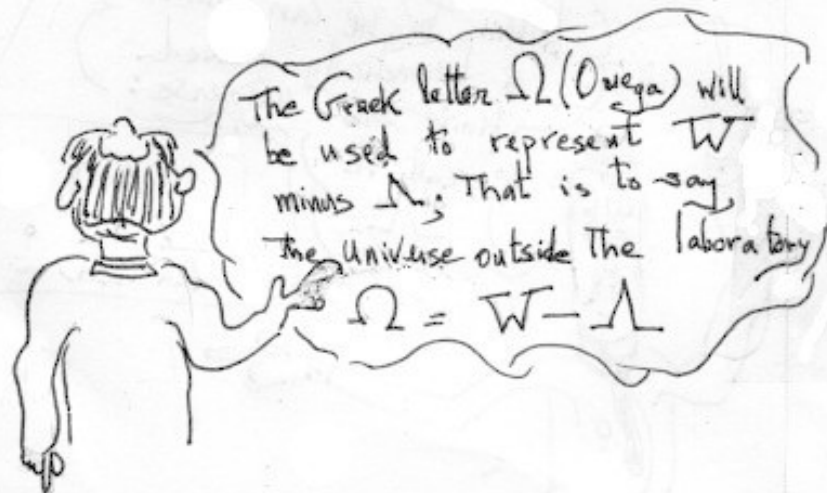 The Greek letter Ω (Omega) will
be used to represent W
minus Λ; That is to say,
The universe outside The laboratory
Ω = W - Λ